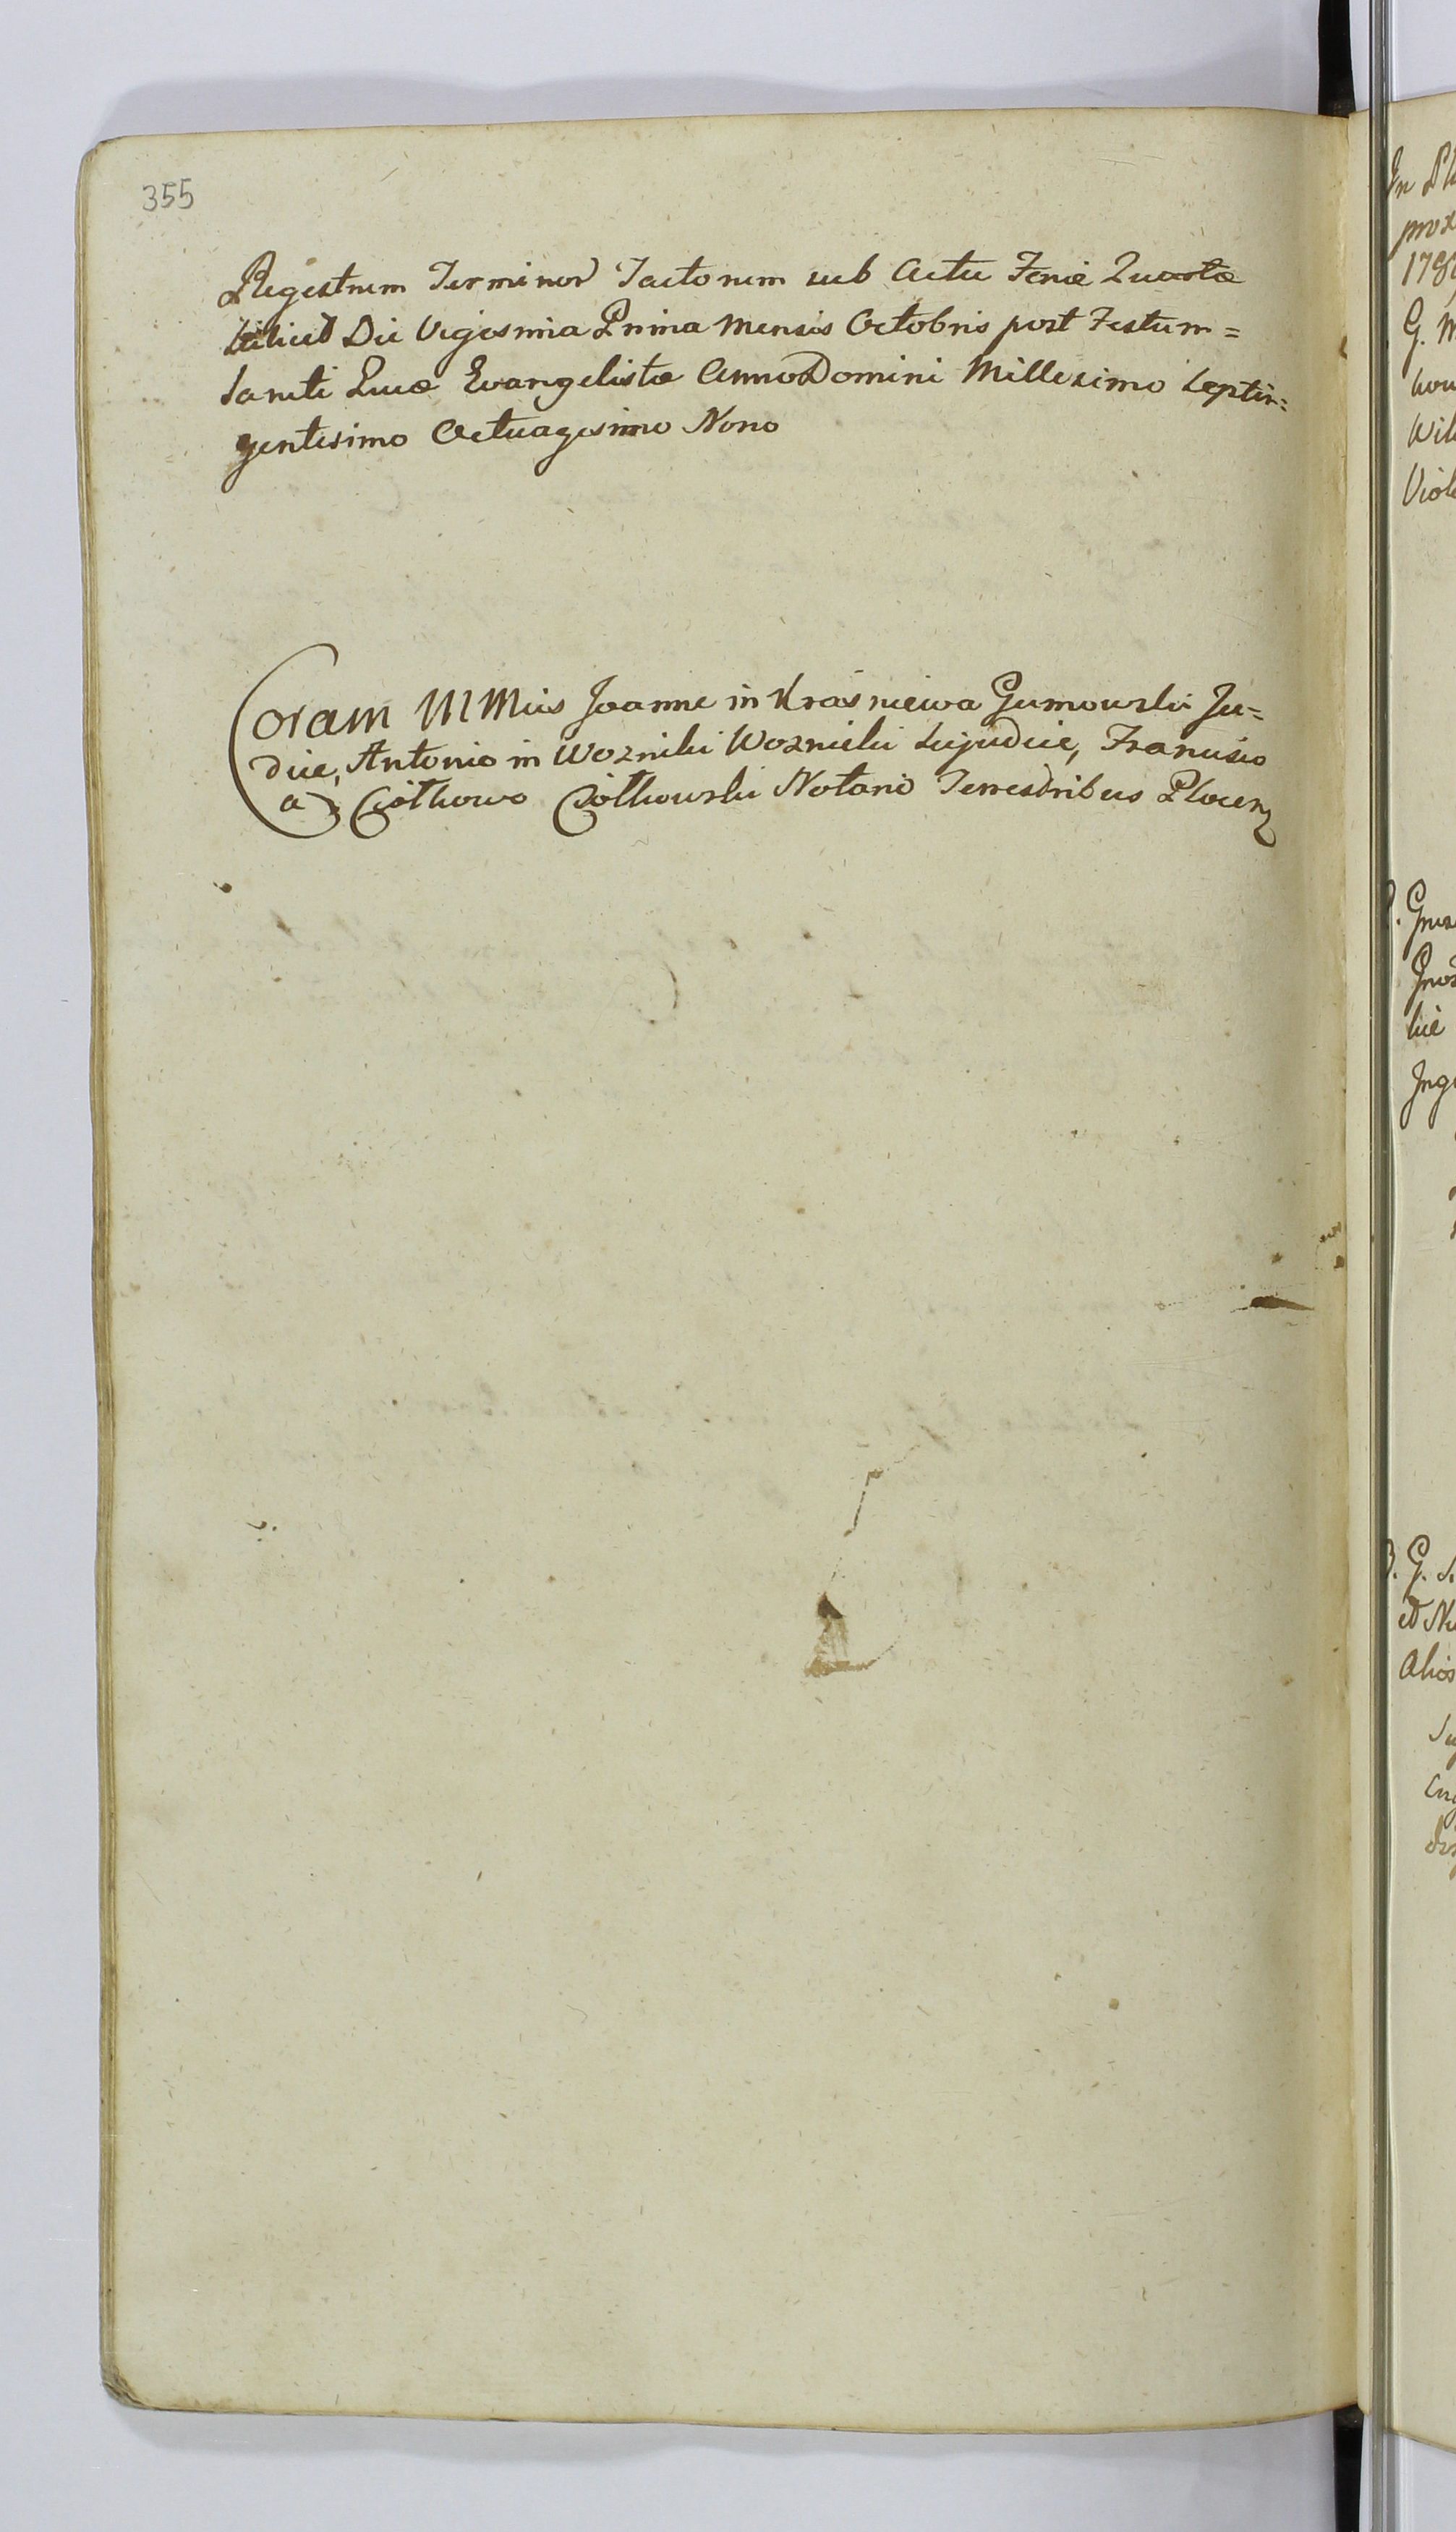 355
Regestrum Terminor Tactorum sub Actu Feriæ Quartæ
scilicet Die Vigesima Prima Mensis Octobris post Festum =
Sancti Lucæ Evangelistæ Anno Domini Millesimo Septin=
gentesimo Octuagesimo Nono
Coram MMcis Joanne in Kraśniewa Gumowski Ju=
dice, Antonio in Wozniki Woznicki Subjudice, Francisco
a Ciółkowo Ciółkowski Notario Terrestribus Plocen